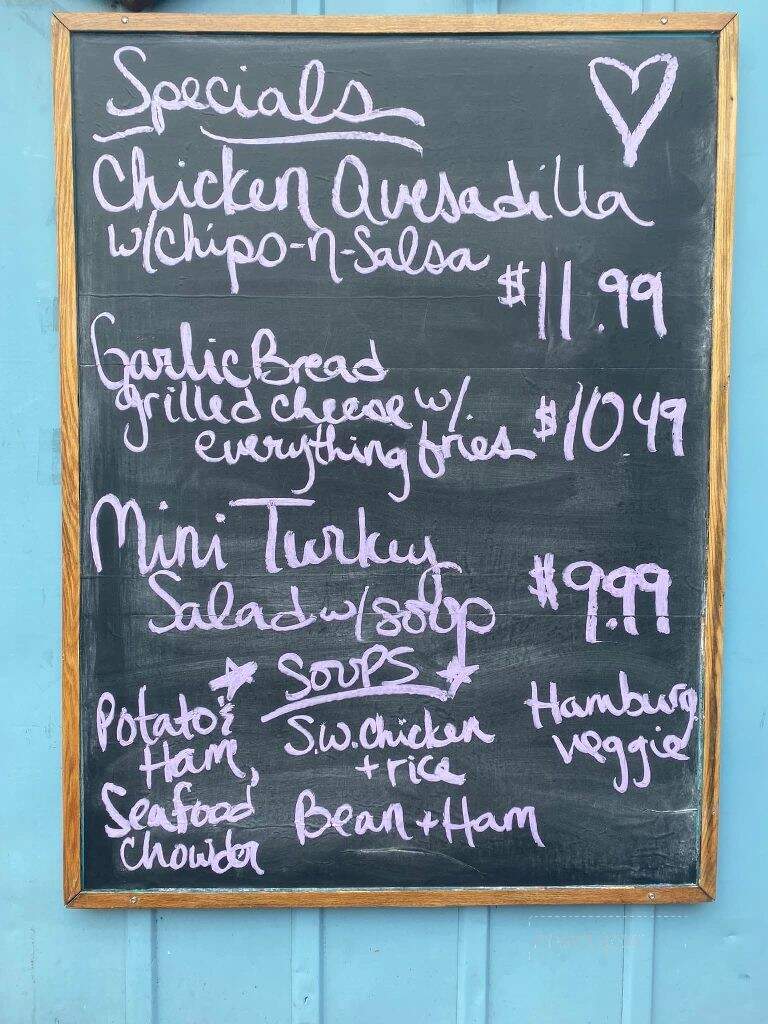 Specials
Chicken Quesadilla
w/chips-n-Salsa
$11.99
Garlic Bread
grilled cheese w/
everything fries $1049
Mini Turkey
Salad w/soup $9.99
Soups
Potato &
Ham,
Seafood
Chowder
S.W. Chicken
+ rice
Bean + Ham
Hamburg
veggie